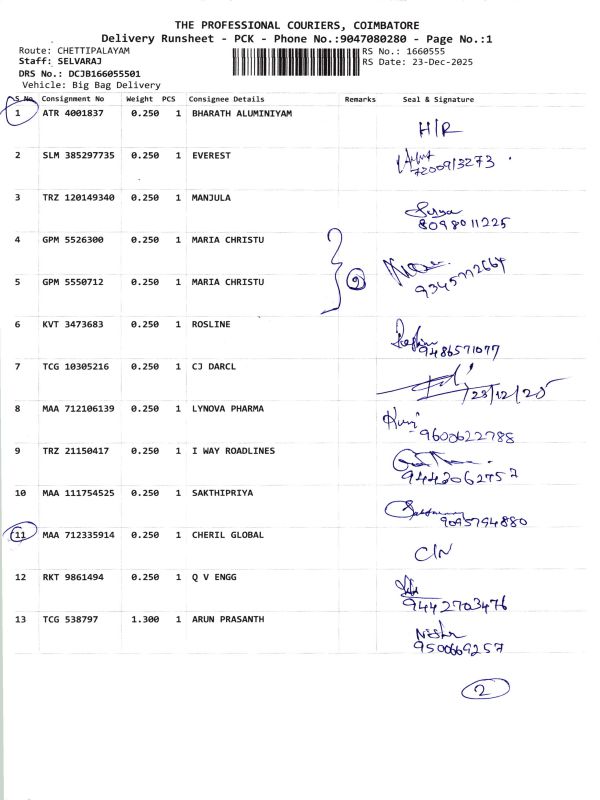 THE PROFESSIONAL COURIERS, COIMBATORE
Delivery Runsheet - PCK - Phone No.:9047080280 - Page No.:1
Route: CHETTIPALAYAM
RS No.: 1660555
Staff: SELVARAJ
RS Date: 23-Dec-2025
DRS No.: DCJB166055501
Vehicle: Big Bag Delivery
S No. Consignment No Weight PCS Consignee Details Remarks Seal & Signature
1 ATR 4001837 0.250 1 BHARATH ALUMINIYAM
H/R
2 SLM 385297735 0.250 1 EVEREST
7200913273
3 TRZ 120149340 0.250 1 MANJULA
8098011225
4 GPM 5526300 0.250 1 MARIA CHRISTU
5 GPM 5550712 0.250 1 MARIA CHRISTU
2
6 KVT 3473683 0.250 1 ROSLINE
9486571077
7 TCG 10305216 0.250 1 CJ DARCL
23/12/25
8 MAA 712106139 0.250 1 LYNOVA PHARMA
9600622788
9 TRZ 21150417 0.250 1 I WAY ROADLINES
9442062757
10 MAA 111754525 0.250 1 SAKTHIPRIYA
9095794880
11 MAA 712335914 0.250 1 CHERIL GLOBAL
C/N
12 RKT 9861494 0.250 1 Q V ENGG
9442703476
13 TCG 538797 1.300 1 ARUN PRASANTH
9500669257
2